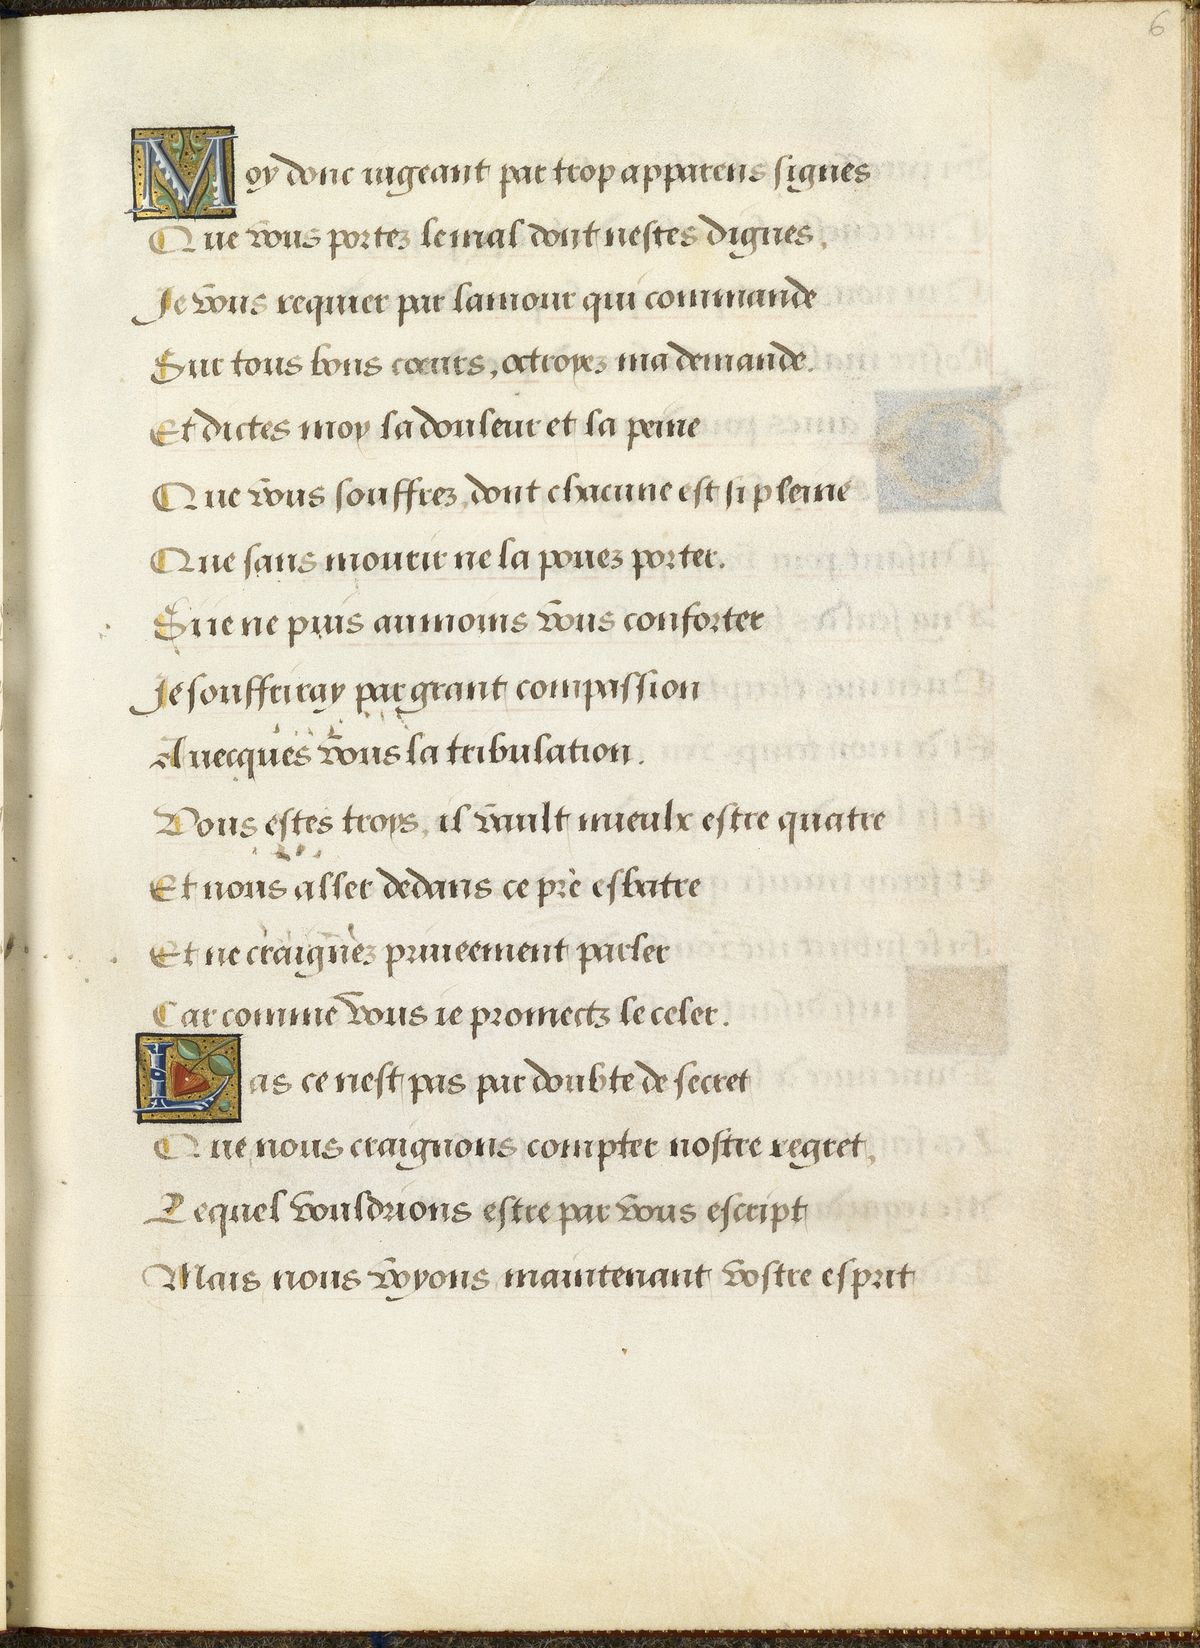 6
Moy donc iugeant par trop apparens signes
Que vous portez le mal dont nestes dignes,
Je vous requier par lamour qui commande
Sur tous bons cœurs, octroyez ma demande.
Et dictes moy la douleur et la peine
Que vous souffrez, dont chacune est si pleine
Que sans mourir ne la pouez porter.
Si ie ne puis aumoins vous conforter
Je souffriray par grant compassion
Auecques vous la tribulation.
Vous estes troys, il vault mieulx estre quatre
Et nous aller dedans ce pre esbatre
Et ne craignez priueement parler
Car comme vous ie promectz le celer.
Las ce nest pas par doubte de secret
Que nous craignons compter nostre regret,
Lequel vouldrions estre par vous escript
Mais nous voyons maintenant vostre esprit